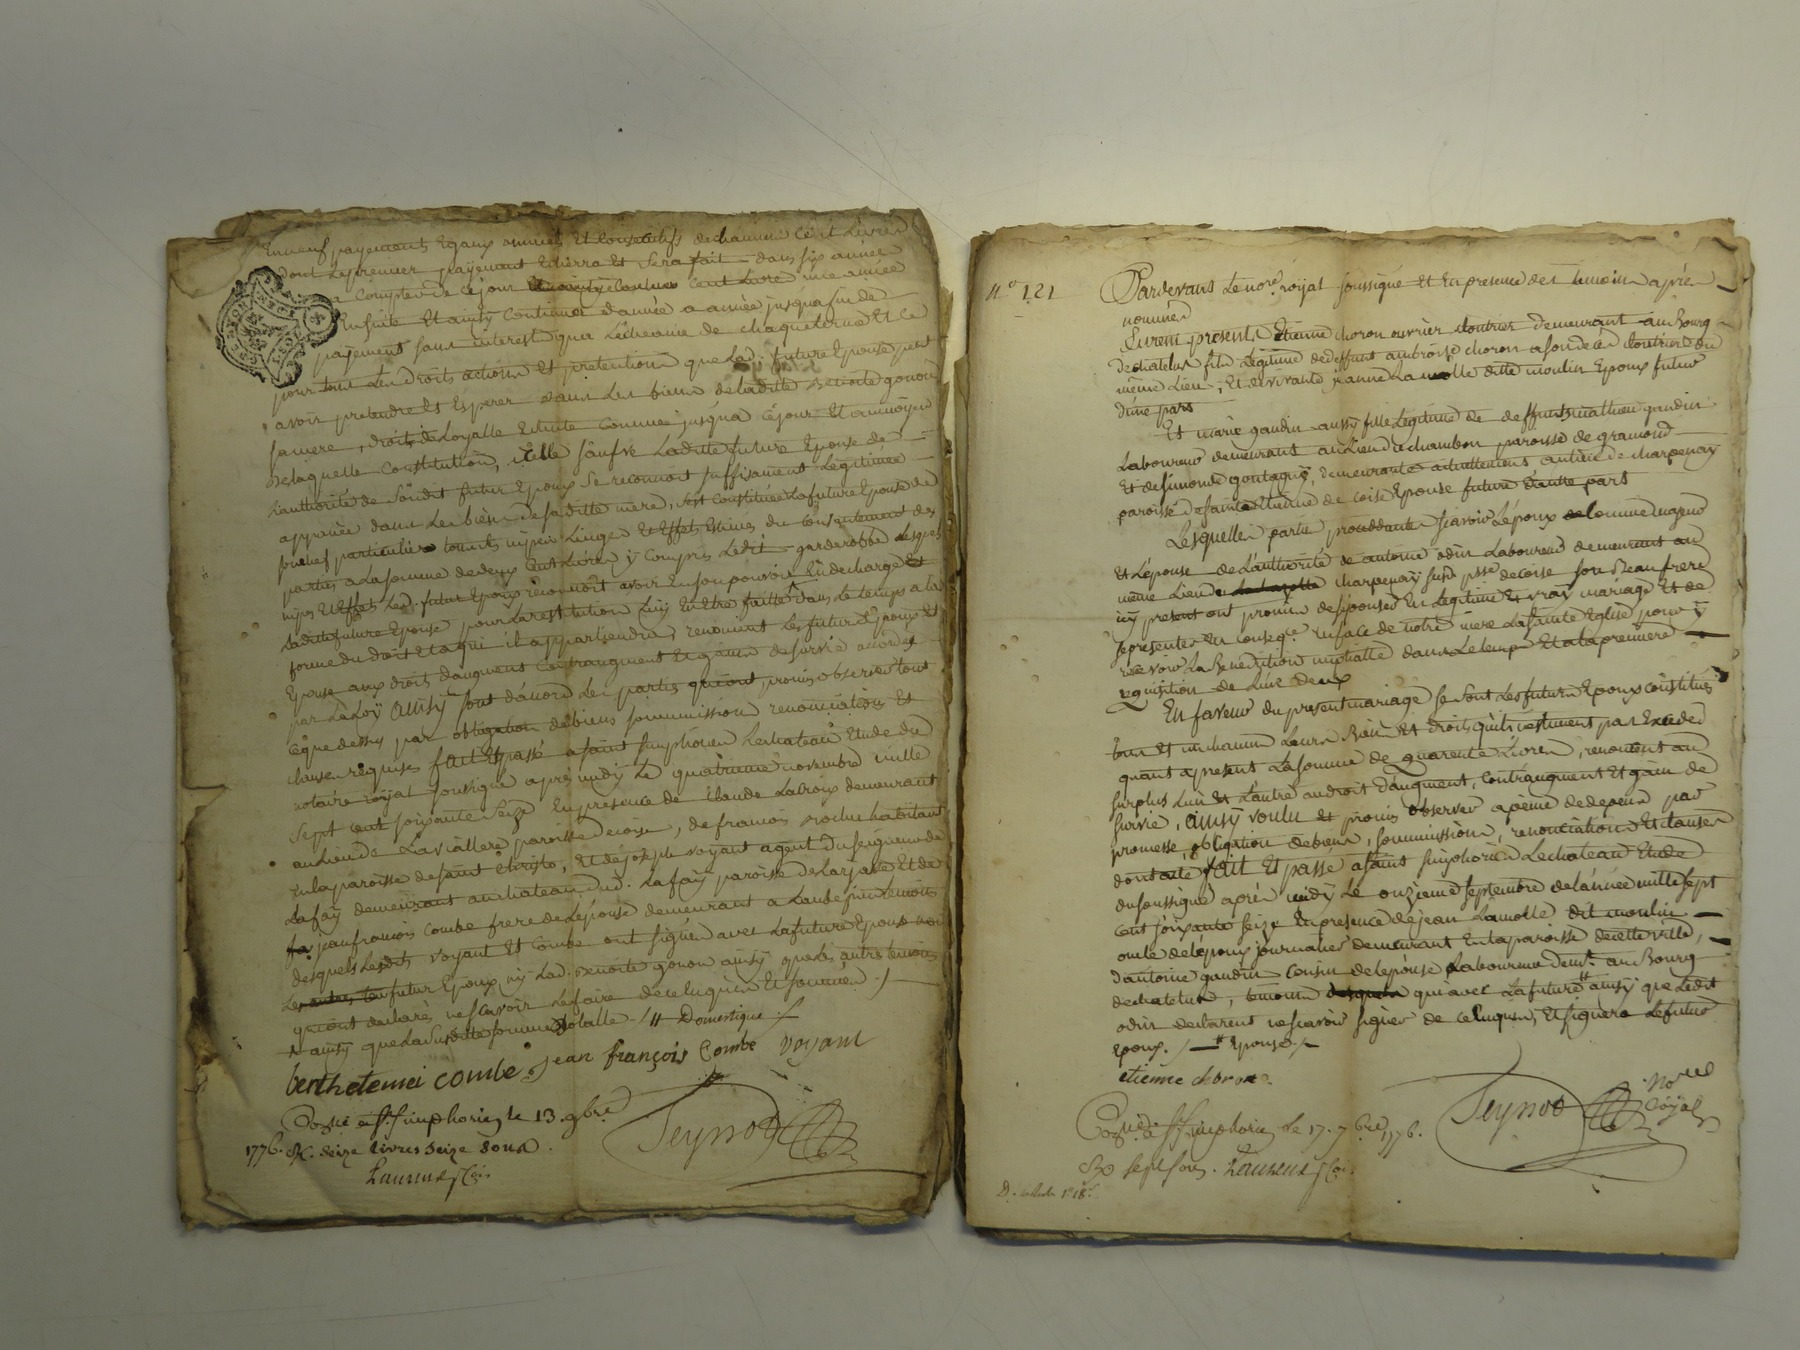 En neuf payements Egaux annuels et consecutifs de chacun Cent Livres
dont Le premier payement Echerra et Sera fait dans six année
a Compter de Ce jour Cent Livre une année
Ensuite Et ainsy Continuer d'année a année jusqua fin de
payement sans interest qua L'écheance de chaque terme Et Ce
pour tous Les droits actions Et pretentions que Lad. future Epouse peut
avoir pretendre Et Esperer dans Les biens de ladite Benoite gonon
sa mere, droits de Loyalle Echute Comme jusqua Ce jour Et au moyen
De laquelle Constitution, icelle ladite future Epouse de
L'authorité de Son dit futur Epoux Se reconnoit suffisament Legitimée
apanée dans Les biens de sa ditte mere, sest Constituée La future Epouse de
particuliers nipes Linges Et Effets Estimés du Consentement des
parties a La somme de deux Cent Livres y Compris Ledit garderobbe Lesquels
nipes Et Effets Led. futur Epoux reconnoit avoir En son pouvoir Et decharge Et
Ladite future Epouse pour La restitution Luy En Etre faitte dans Le temps a La
forme du droit Et a qui il appartiendra, renoncent Les futur Epoux Et
Epouse aux droits daugment Contraugment Et gains de survie accordés
par La Loÿ ainsy sont d'accord Les parties qui ont promis observer tout
Ce que dessus par obligation de biens soummission renonciations Et
clauses requises fait Et passé a saint simphorien Le chateau Etude du
notaire roÿal soussigné apres midy Le quatrieme novembre mille
sept cent soixante seize En presence de Claude Lacroix demeurant
au Lieu de Laviallere paroisse de coise, de francois habitant
En la paroisse de saint Christo, Et de joseph voyant agent du seigneur de
Lafaÿ demeurant au chateau dud. Lafaÿ paroisse de Larjasse Et de
jean francois Combe frere de L'épouse demeurant a Laubepin temoins
desquels Lesdits voyant Et Combe ont signés avec La future Epouse non
Le futur Epoux nÿ Lad. Benoite gonon ainsy que Les autres temoins
qui ont declarés ne Scavoir Le faire de ce Enquis Et sommés ./.
ainsy que Laditte somme totalle ./. Domestique ./.
berthelemei combe jean françois Combe voyant
Con.lé a St. Simphorien Le 13. 9bre
1776. R. seize livres seize sous.
Laurent
Seyvod
N° 121
Pardevant Le no.re roÿal soussigné Et En presence des temoins aprés
nommés
Eurent presents Etienne choron ouvrier cloutrier demeurant au Bourg
de chatelus fils Legitime de deffunt ambroise choron a son deces cloutrier du
même Lieu, Et de vivante jeanne Lamolle ditte moulin Epoux futur
d'une part
Et marie gaudin aussy fille Legitime de deffunts mathieu gaudin
Laboureur demeurant au Lieu de chambon paroisse de gramond
Et de simonde gontagny, demeurante actuellement au Lieu de charpenay
paroisse de sainte Etienne de coise Epouse future d'autre part
Lesquelles parties procedantes scavoir L'époux comme majeur
Et L'épouse de L'authorité de antoine odin Laboureur demeurant au
même Lieu de charpenaÿ susd. psse de coise son Beau frere
icy present ont promis de s'epouser En Legitime Et vraÿ mariage Et de
se presenter En Conseq.ce En face de notre mere La Sainte Eglise pour y
recevoir La Benediction nuptialle dans Le temps Et a la premiere
requisition de L'un deux
En faveur du present mariage se sont Les futurs Epoux Constitués
tous Et un chacun Leurs Biens Et droits quils n'estiment pas Exceder
quant a present La somme de quarente Livres, renoncent au
surplus L'un Et L'autre au droit d'augment, Contraugment Et gain de
survie, ainsy voulu Et promis observer a peine de depens par
promesse, obligation de biens, soummissions, renonciations Et clauses
dont acte fait Et passé a saint simphorien Le chateau Etude
du soussigné aprés midÿ Le onzieme septembre de L'année mille sept
cent soixante seize En presence de jean Lamolle dit moulin
oncle de L'époux journalier demeurant En la paroisse de cette ville,
d'antoine gaudin Cousin de L'epouse Laboureur dem.t au Bourg
de chatelus, temoins qui avec La future ainsy que Ledit
odin declarent ne scavoir signer de ce Enquis, Et signera Le futur
Epoux. ./. Epouse ./.
etienne choron
Seyvod
No.re
Roÿal
Con.lé a St. Simphorien Le 17. 7bre 1776.
R. sept sous. Laurent